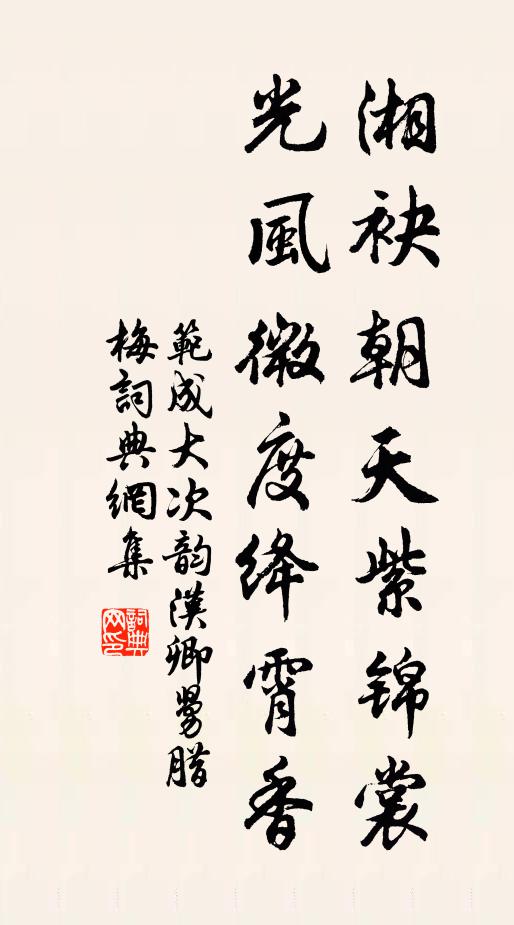 湘袂朝天紫錦裳
光風微度绛霄香
範成大次韵漢卿舅腊
梅詞典網集
詞典網印